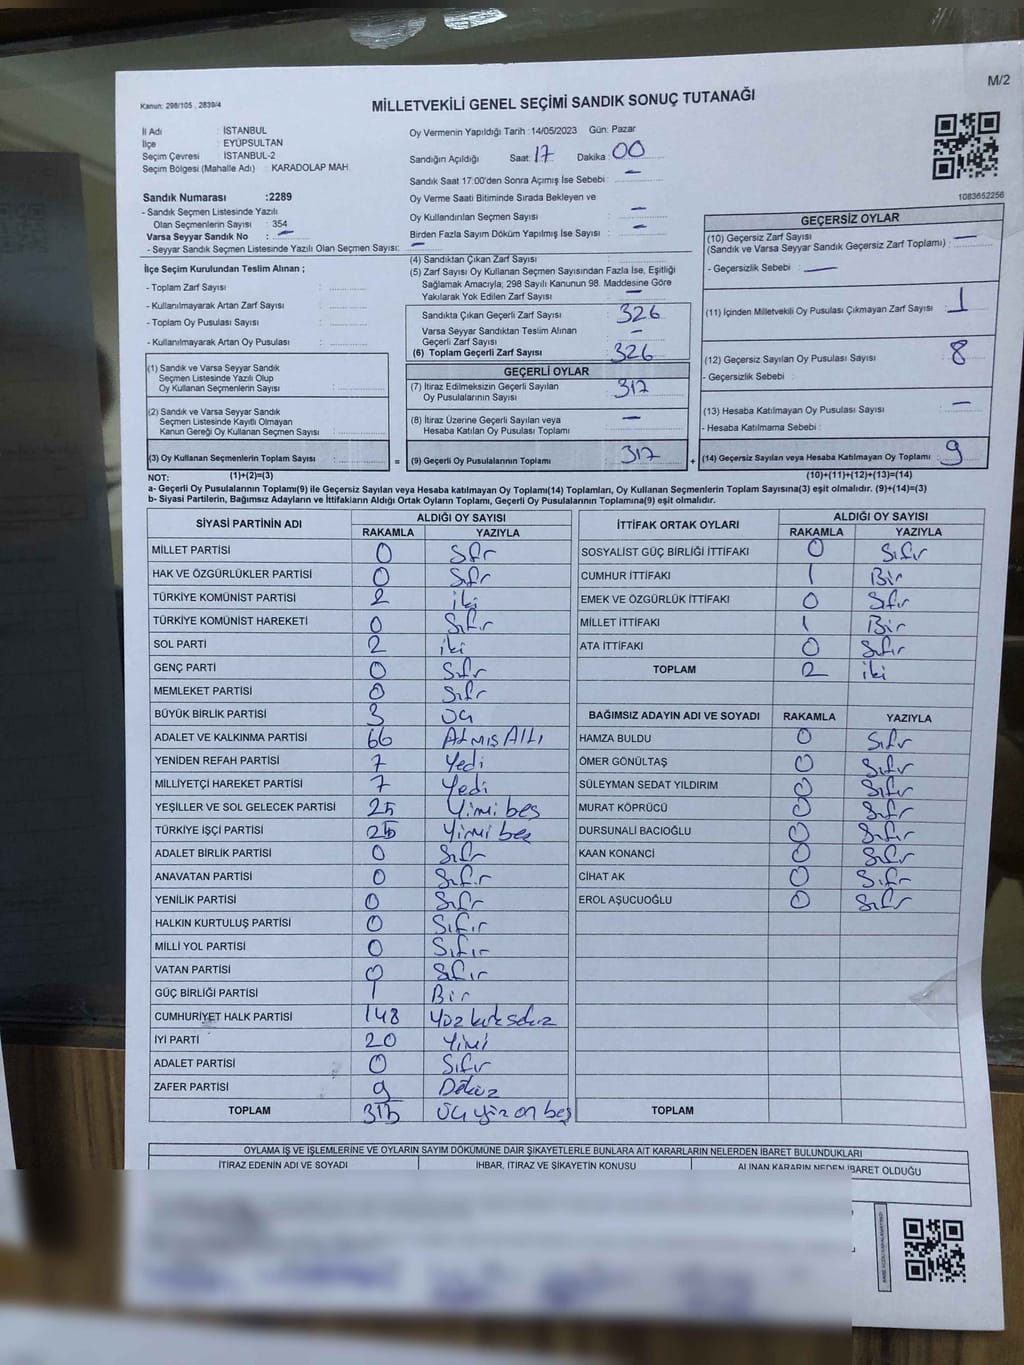 M/2
Kanun: 298/105 , 2839/4
MİLLETVEKİLİ GENEL SEÇİMİ SANDIK SONUÇ TUTANAĞI
İl Adı : İSTANBUL
İlçe : EYÜPSULTAN
Seçim Çevresi : İSTANBUL-2
Seçim Bölgesi (Mahalle Adı) : KARADOLAP MAH.
Sandık Numarası :2289
- Sandık Seçmen Listesinde Yazılı
Olan Seçmenlerin Sayısı : 354
Varsa Seyyar Sandık No : -
- Seyyar Sandık Seçmen Listesinde Yazılı Olan Seçmen Sayısı: -
Oy Vermenin Yapıldığı Tarih :14/05/2023 Gün: Pazar
Sandığın Açıldığı Saat: 17 Dakika: 00
Sandık Saat 17:00'den Sonra Açımış İse Sebebi : -
Oy Verme Saati Bitiminde Sırada Bekleyen ve
Oy Kullandırılan Seçmen Sayısı : -
Birden Fazla Sayım Döküm Yapılmış İse Sayısı : -
1083652256
İlçe Seçim Kurulundan Teslim Alınan ;
- Toplam Zarf Sayısı :
- Kullanılmayarak Artan Zarf Sayısı :
- Toplam Oy Pusulası Sayısı :
- Kullanılmayarak Artan Oy Pusulası :
(1) Sandık ve Varsa Seyyar Sandık
Seçmen Listesinde Yazılı Olup
Oy Kullanan Seçmenlerin Sayısı :
(2) Sandık ve Varsa Seyyar Sandık
Seçmen Listesinde Kayıtlı Olmayan
Kanun Gereği Oy Kullanan Seçmen Sayısı :
(3) Oy Kullanan Seçmenlerin Toplam Sayısı :
(1)+(2)=(3)
(4) Sandıktan Çıkan Zarf Sayısı :
(5) Zarf Sayısı Oy Kullanan Seçmen Sayısından Fazla İse, Eşitliği
Sağlamak Amacıyla, 298 Sayılı Kanunun 98. Maddesine Göre
Yakılarak Yok Edilen Zarf Sayısı : -
Sandıkta Çıkan Geçerli Zarf Sayısı : 326
Varsa Seyyar Sandıktan Teslim Alınan
Geçerli Zarf Sayısı : -
(6) Toplam Geçerli Zarf Sayısı : 326
GEÇERLİ OYLAR
(7) İtiraz Edilmeksizin Geçerli Sayılan
Oy Pusulalarının Sayısı : 317
(8) İtiraz Üzerine Geçerli Sayılan veya
Hesaba Katılan Oy Pusulası Toplamı : -
= (9) Geçerli Oy Pusulalarının Toplamı : 317 +
GEÇERSİZ OYLAR
(10) Geçersiz Zarf Sayısı : -
(Sandık ve Varsa Seyyar Sandık Geçersiz Zarf Toplamı)
- Geçersizlik Sebebi : -
(11) İçinden Milletvekili Oy Pusulası Çıkmayan Zarf Sayısı : 1
(12) Geçersiz Sayılan Oy Pusulası Sayısı : 8
- Geçersizlik Sebebi :
(13) Hesaba Katılmayan Oy Pusulası Sayısı : -
- Hesaba Katılmama Sebebi :
(14) Geçersiz Sayılan veya Hesaba Katılmayan Oy Toplamı : 9
(10)+(11)+(12)+(13)=(14)
NOT:
a- Geçerli Oy Pusulalarının Toplamı(9) ile Geçersiz Sayılan veya Hesaba katılmayan Oy Toplamı(14) Toplamları, Oy Kullanan Seçmenlerin Toplam Sayısına(3) eşit olmalıdır. (9)+(14)=(3)
b- Siyasi Partilerin, Bağımsız Adayların ve İttifakların Aldığı Ortak Oyların Toplamı, Geçerli Oy Pusulalarının Toplamına(9) eşit olmalıdır.
SİYASİ PARTİNİN ADI ALDIĞI OY SAYISI
RAKAMLA YAZIYLA
MİLLET PARTİSİ 0 Sfr
HAK VE ÖZGÜRLÜKLER PARTİSİ 0 Sfr
TÜRKİYE KOMÜNİST PARTİSİ 2 iki
TÜRKİYE KOMÜNİST HAREKETİ 0 Sıfır
SOL PARTİ 2 iki
GENÇ PARTİ 0 Sıfr
MEMLEKET PARTİSİ 0 Sıfr
BÜYÜK BİRLİK PARTİSİ 3 Üç
ADALET VE KALKINMA PARTİSİ 66 ATMIŞ ALTI
YENİDEN REFAH PARTİSİ 7 Yedi
MİLLİYETÇİ HAREKET PARTİSİ 7 Yedi
YEŞİLLER VE SOL GELECEK PARTİSİ 25 Yimi beş
TÜRKİYE İŞÇİ PARTİSİ 25 Yirmi beş
ADALET BİRLİK PARTİSİ 0 Sıfr
ANAVATAN PARTİSİ 0 Sıfır
YENİLİK PARTİSİ 0 Sıfr
HALKIN KURTULUŞ PARTİSİ 0 Sıfır
MİLLİ YOL PARTİSİ 0 Sıfır
VATAN PARTİSİ 0 Sıfır
GÜÇ BİRLİĞİ PARTİSİ 1 Bir
CUMHURİYET HALK PARTİSİ 148 Yüz kırk sekiz
İYİ PARTİ 20 Yimi
ADALET PARTİSİ 0 Sıfır
ZAFER PARTİSİ 9 Dokuz
TOPLAM 315 Üç yüz on beş
İTTİFAK ORTAK OYLARI ALDIĞI OY SAYISI
RAKAMLA YAZIYLA
SOSYALİST GÜÇ BİRLİĞİ İTTİFAKI 0 Sıfır
CUMHUR İTTİFAKI 1 Bir
EMEK VE ÖZGÜRLÜK İTTİFAKI 0 Sıfır
MİLLET İTTİFAKI 1 Bir
ATA İTTİFAKI 0 Sıfır
TOPLAM 2 iki
BAĞIMSIZ ADAYIN ADI VE SOYADI RAKAMLA YAZIYLA
HAMZA BULDU 0 Sıfır
ÖMER GÖNÜLTAŞ 0 Sıfır
SÜLEYMAN SEDAT YILDIRIM 0 Sıfır
MURAT KÖPRÜCÜ 0 Sıfır
DURSUNALİ BACIOĞLU 0 Sıfır
KAAN KONANCİ 0 Sıfır
CİHAT AK 0 Sıfır
EROL AŞUCUOĞLU 0 Sıfır
TOPLAM
OYLAMA İŞ VE İŞLEMLERİNE VE OYLARIN SAYIM DÖKÜMÜNE DAİR ŞİKAYETLERLE BUNLARA AİT KARARLARIN NELERDEN İBARET BULUNDUKLARI
İTİRAZ EDENİN ADI VE SOYADI İHBAR, İTİRAZ VE ŞİKAYETİN KONUSU ALINAN KARARIN NEDEN İBARET OLDUĞU